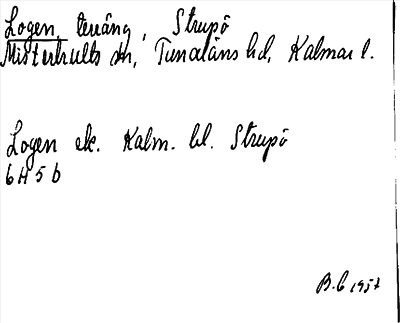 Logen, teräng, Strupö
Misterhults sn, Tunaläns hd, Kalmar l.
Logen ek. Kalm. bl. Strupö
6H5b
B.C 1957